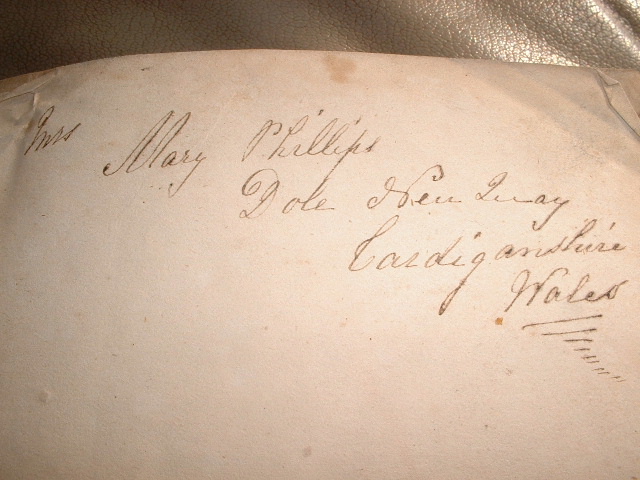 Mrs Mary Phillips
Dole New Quay
Cardiganshire
Wales